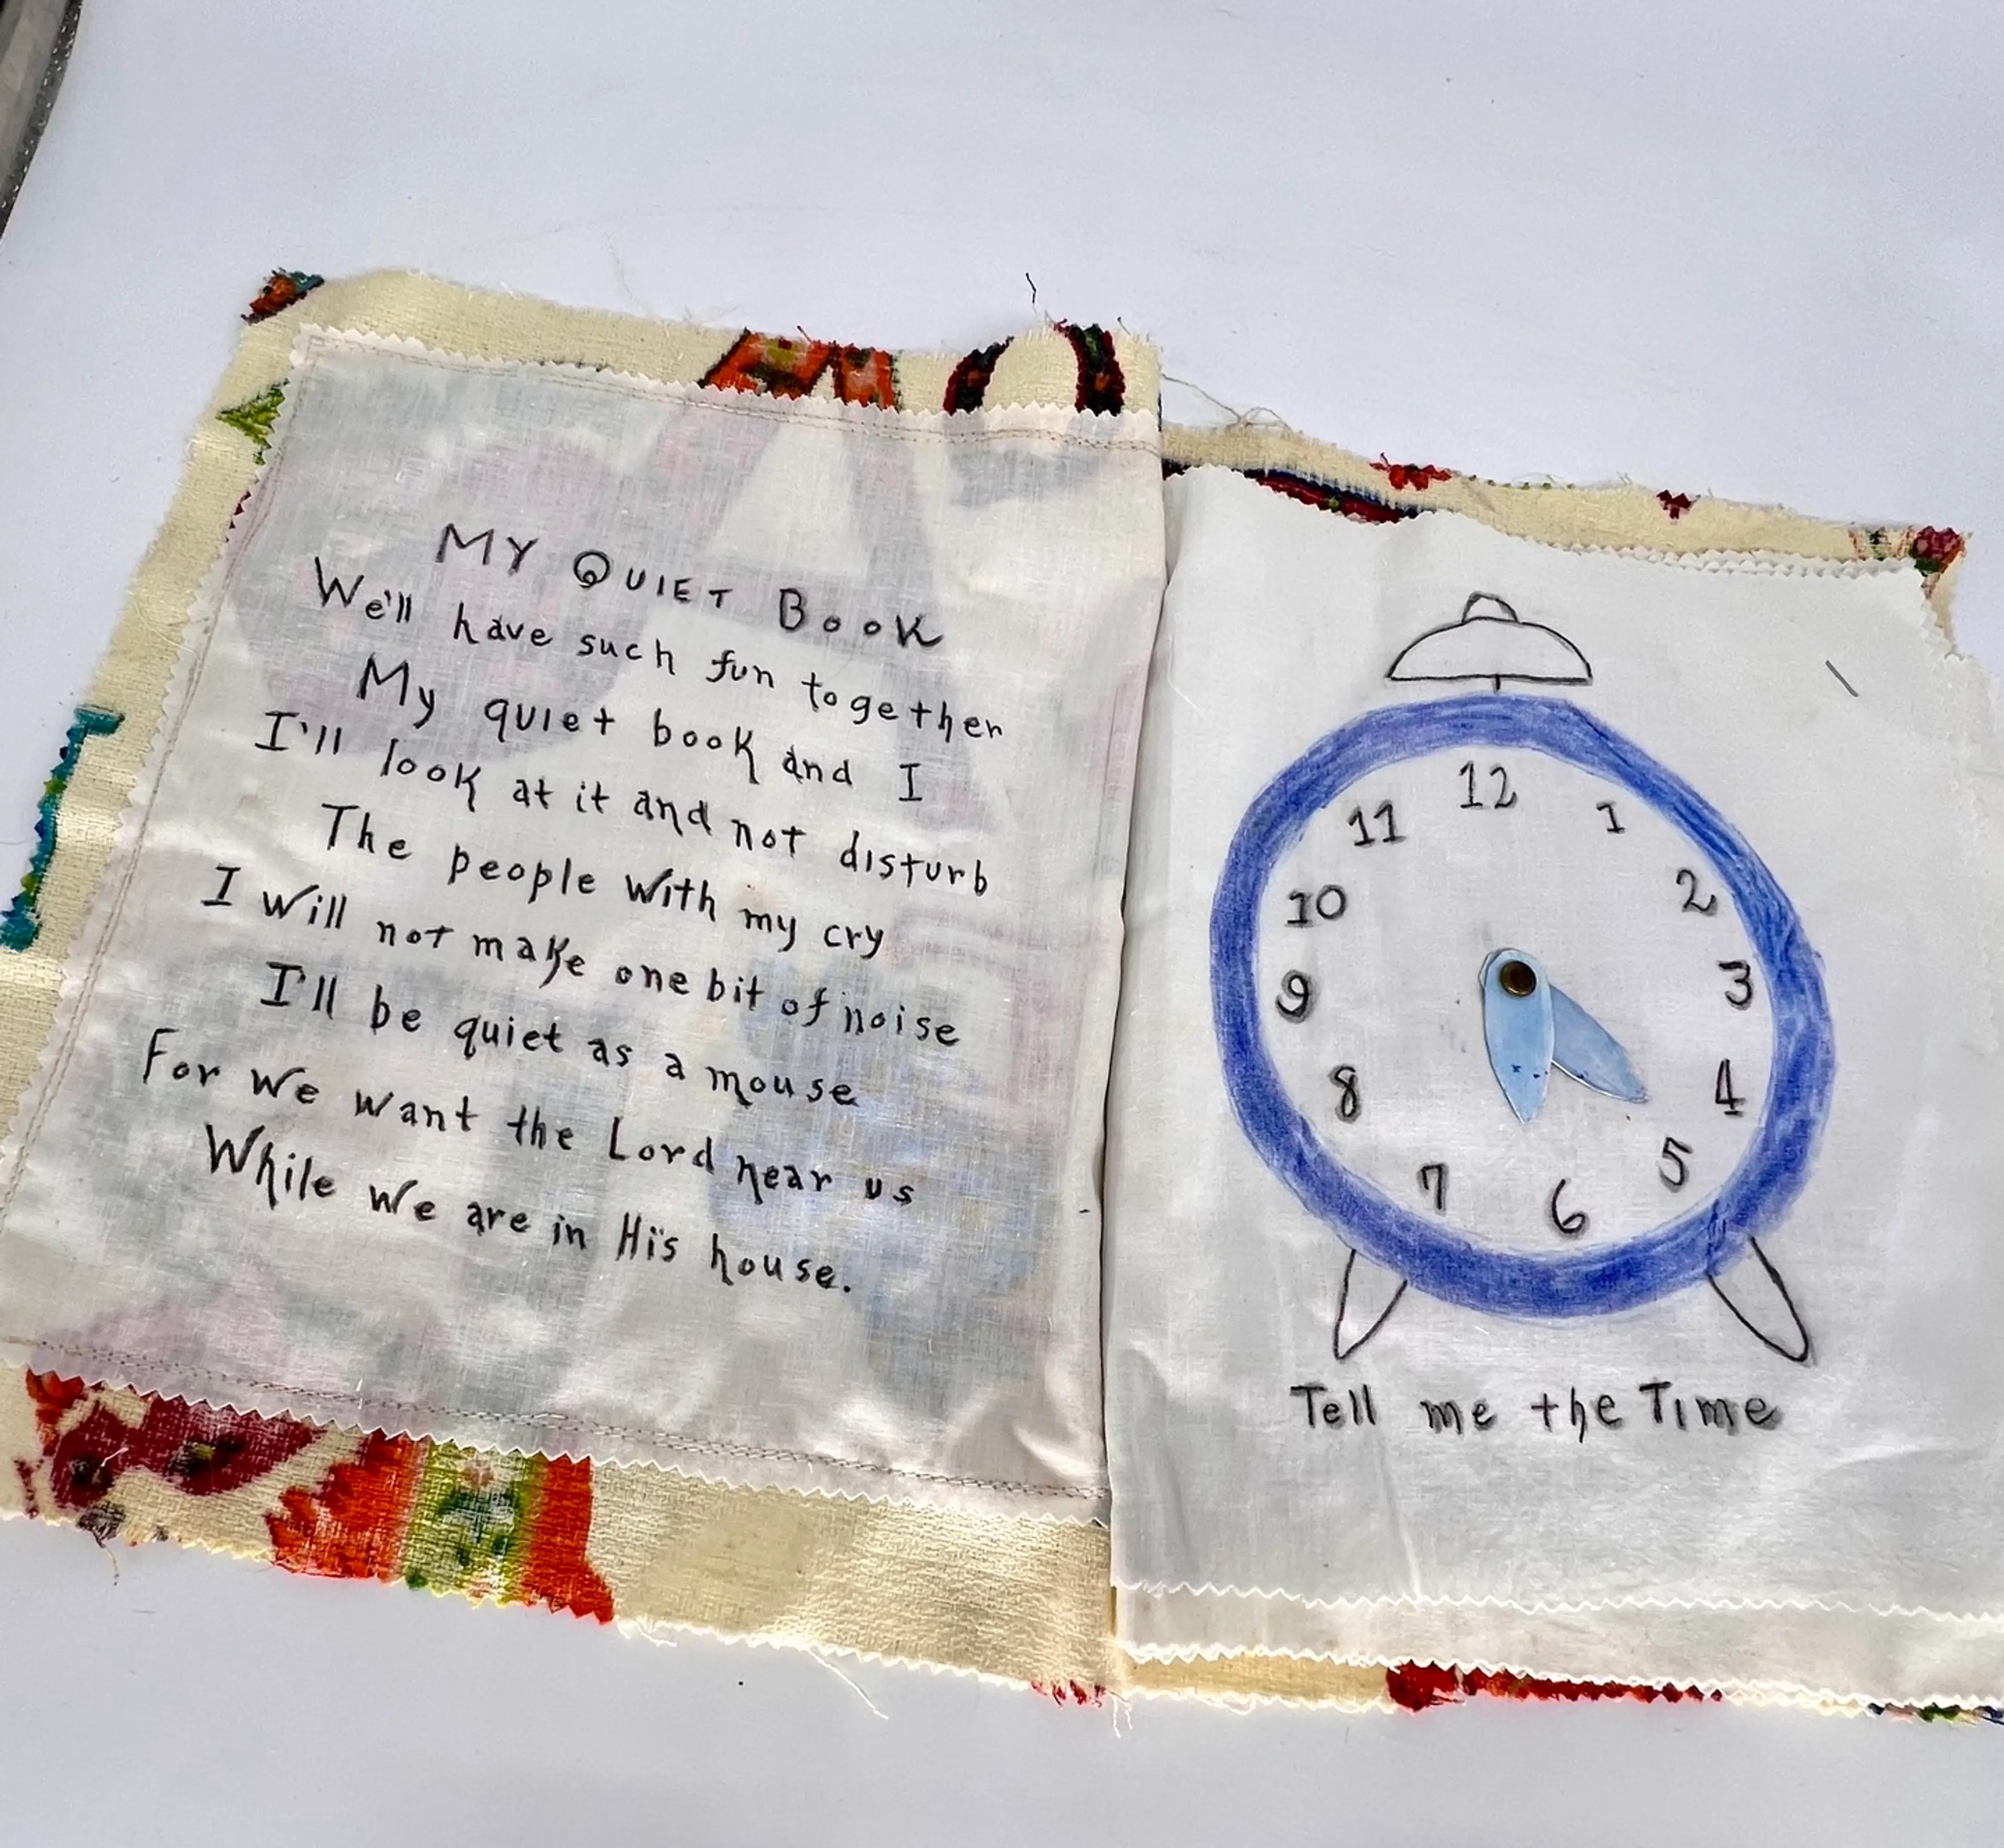 MY QUIET BOOK
We'll have such fun together
My quiet book and I
I'll look at it and not disturb
The people with my cry
I will not make one bit of noise
I'll be quiet as a mouse
For we want the Lord near us
While we are in His house.
12
11 1
10 2
9 3
8 4
7 5
6
Tell me the Time